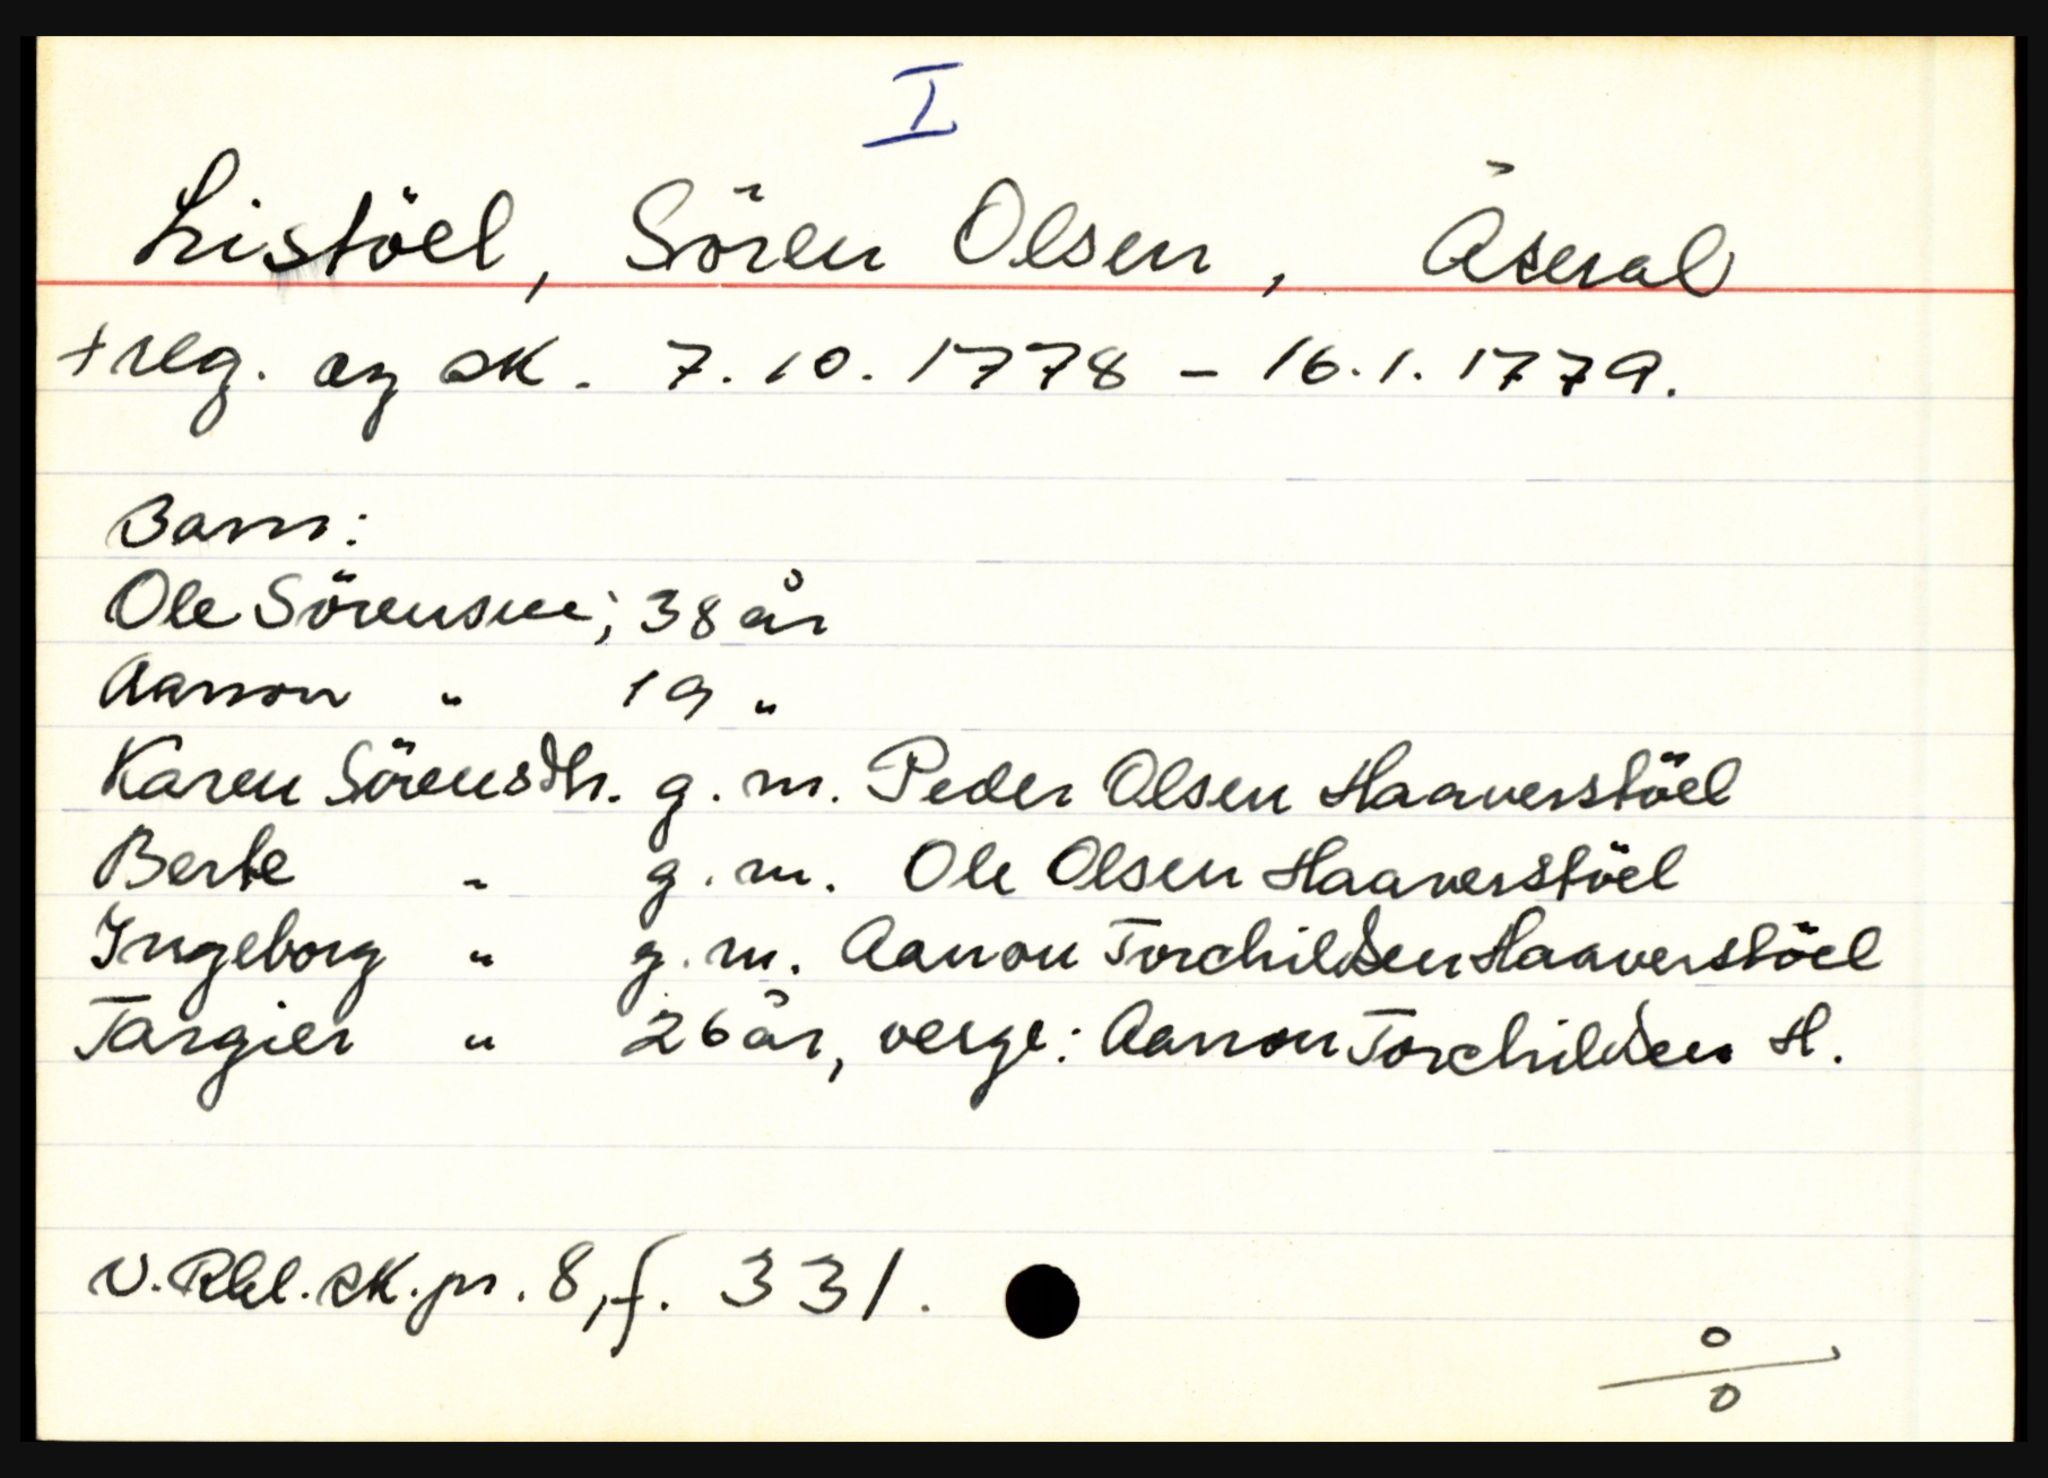 I
Listöel, Sören Olsen, Åseral
+ reg. og sk. 7.10.1778 - 16.1.1779.
Barn:
Ole Sörensen; 38 år
Aanon " 19 "
Karen Sörensdtr. g.m. Peder Olsen Haaverstöel
Berte " g.m. Ole Olsen Haaverstöel
Ingeborg " g.m. Aanon Torchildsen Haaverstöel
Targier " 26 år, verge: Aanon Torchildsen H.
V. Rbl. sk. pr. 8, f. 331.
0
0